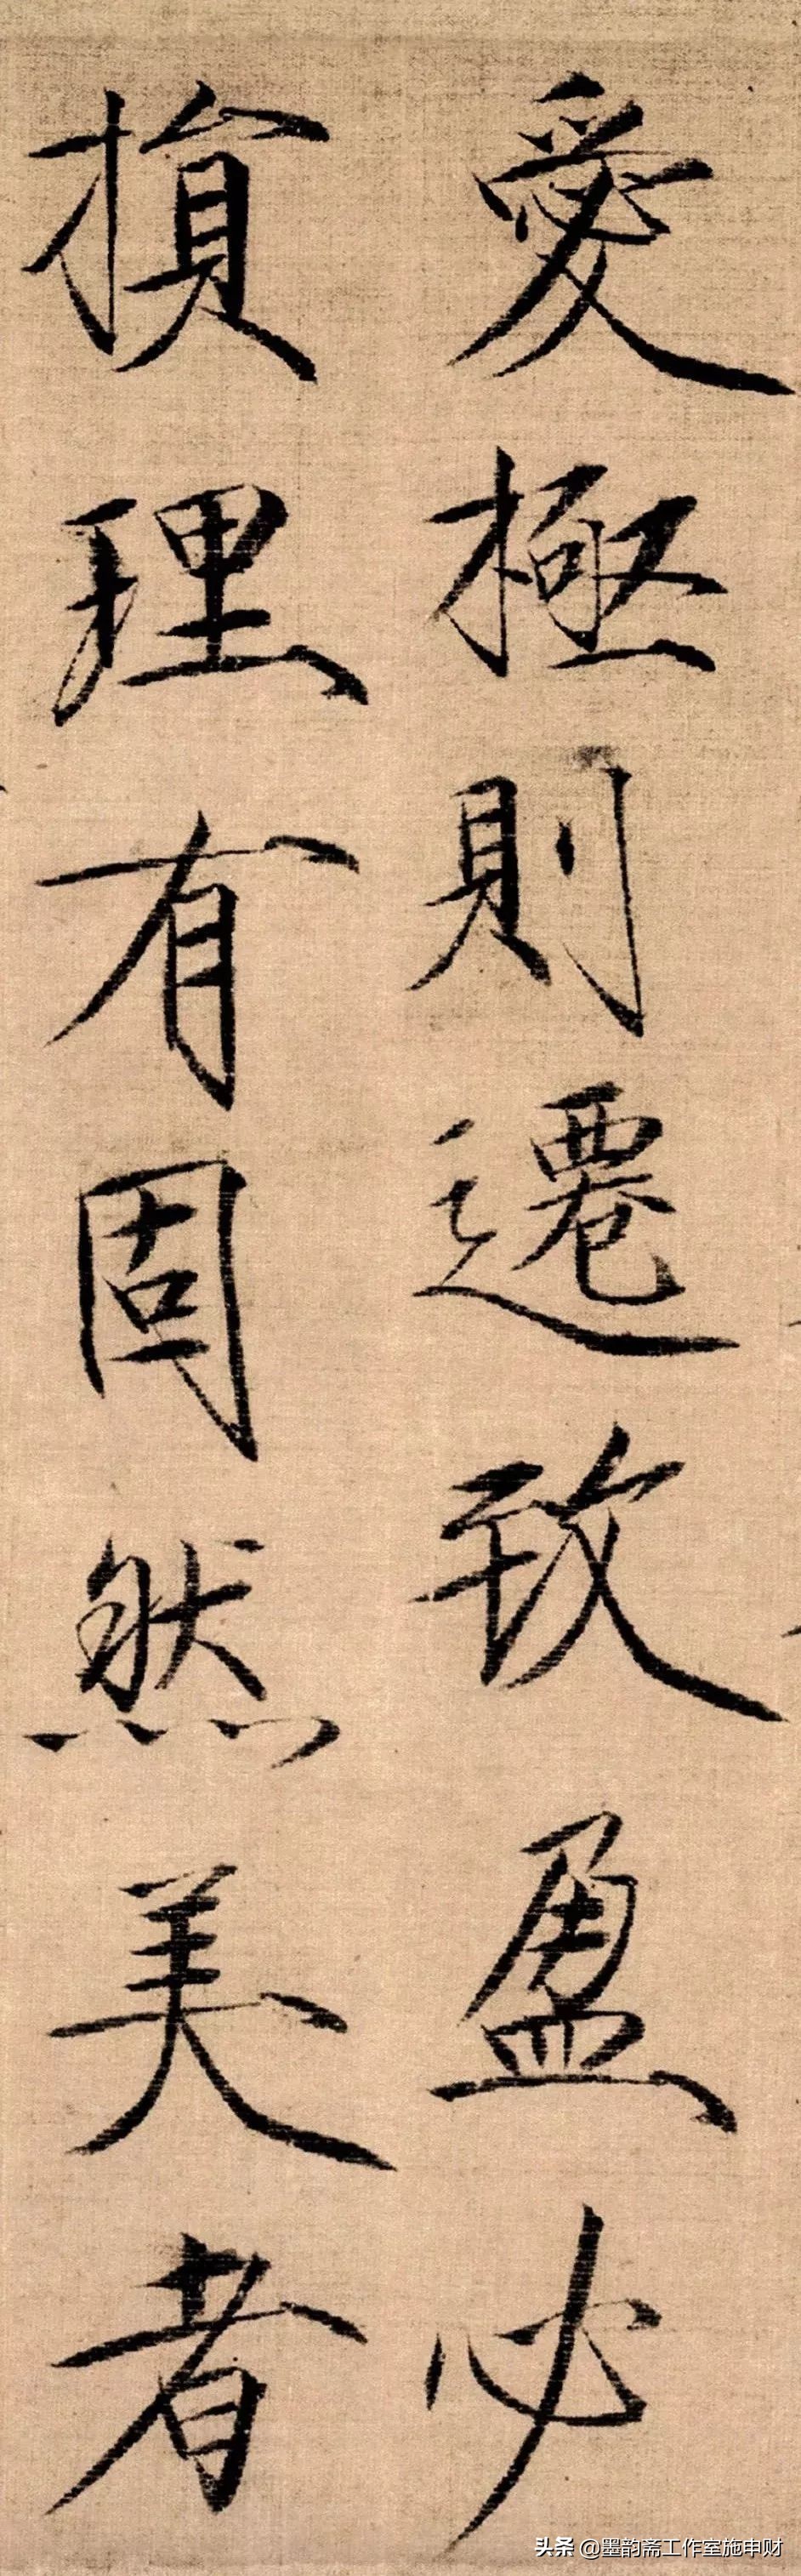 愛極則遷致盈必
損理有固然美者
头条 @墨韵斋工作室施申财